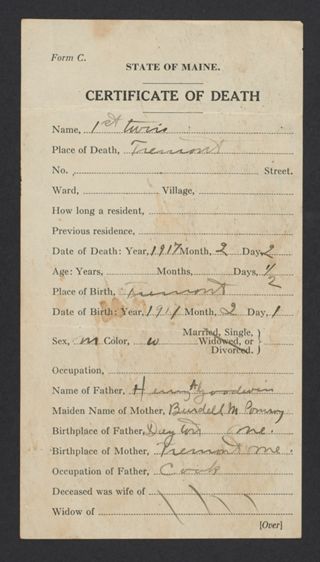 Form C.
STATE OF MAINE.
CERTIFICATE OF DEATH
Name, 1st twin
Place of Death, Tremont
No. Street.
Ward, Village,
How long a resident,
Previous residence,
Date of Death: Year, 1917 Month, 2 Day, 2
Age: Years, Months, Days, 1/2
Place of Birth, Tremont
Date of Birth: Year, 1917 Month, 2 Day, 1
Sex, m Color, w Married, Single, Widowed, or Divorced.
Occupation,
Name of Father, Henry Goodwin
Maiden Name of Mother, Burdell M
Birthplace of Father, Me.
Birthplace of Mother, Tremont Me.
Occupation of Father, Cook
Deceased was wife of
Widow of
[Over]